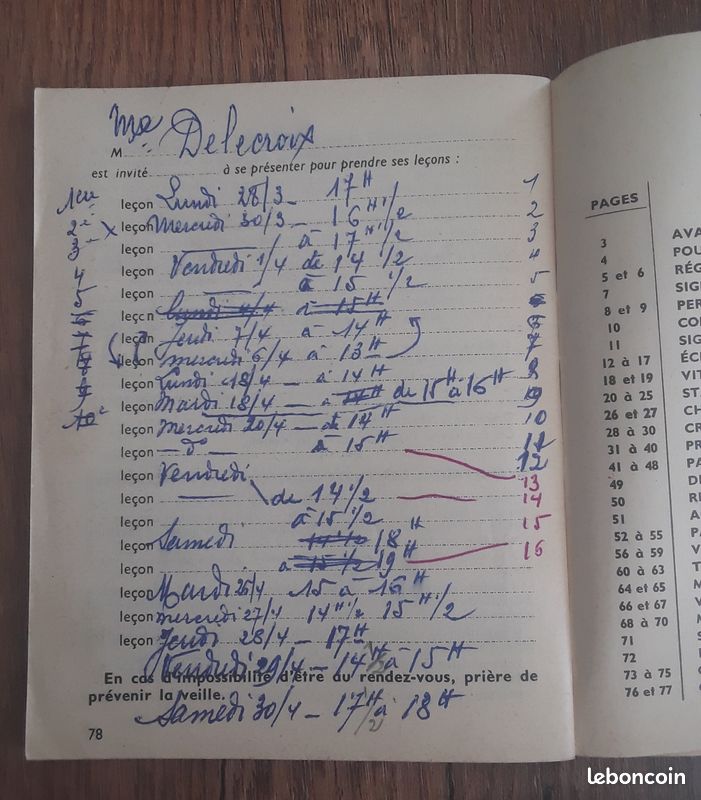 Mr Delecroix
M
est invité à se présenter pour prendre ses leçons :
1ère leçon Lundi 28/3 - 17H 1
2e leçon Mercredi 30/3 - 16H 1/2 2
3e leçon à 17H 1/2 3
4 leçon Vendredi 1/4 de 14 1/2 4
5 leçon à 15 1/2 5
6 leçon Lundi 4/4 à 15H 6
leçon Jeudi 7/4 à 14H 6
leçon mercredi 6/4 à 13H 7
leçon Lundi 18/4 - à 14H 8
leçon Mardi 18/4 - à 14H de 15H à 16H 9
10e leçon Mercredi 20/4 - à 14H 10
leçon - do - à 15H 11
leçon Vendredi 12
13
leçon de 14 1/2 14
leçon à 15 1/2 15
leçon Samedi 14 1/2 18H
leçon à 15 1/2 19H 16
leçon Mardi 26/4 15 à 16H
leçon mercredi 27/4 14H 1/2 15H 1/2
leçon Jeudi 28/4 - 17H
Vendredi 29/4 - 14H à 15H
En cas d'impossibilité d'être au rendez-vous, prière de
prévenir la veille.
Samedi 30/4 - 17H 1/2 à 18H
78
PAGES
3 AVA
4 POU
5 et 6 RÉG
7 SIG
8 et 9 PER
10 CO
11 SIG
12 à 17 ÉCL
18 et 19 VIT
20 à 25 ST
26 et 27 CH
28 à 30 CR
31 à 40 PR
41 à 48 PA
49 DE
50 RE
51 A
52 à 55 PA
56 à 59 V
60 à 63 T
64 et 65 M
66 et 67 V
68 à 70 M
71 S
72
73 à 75
76 et 77
leboncoin